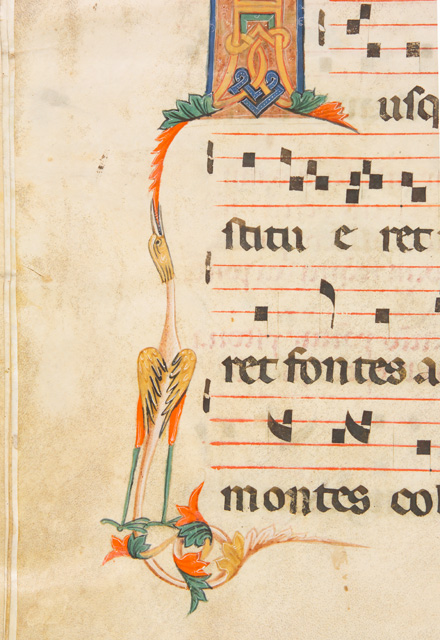 usq
stitu e ret
ret fontes a
montes col